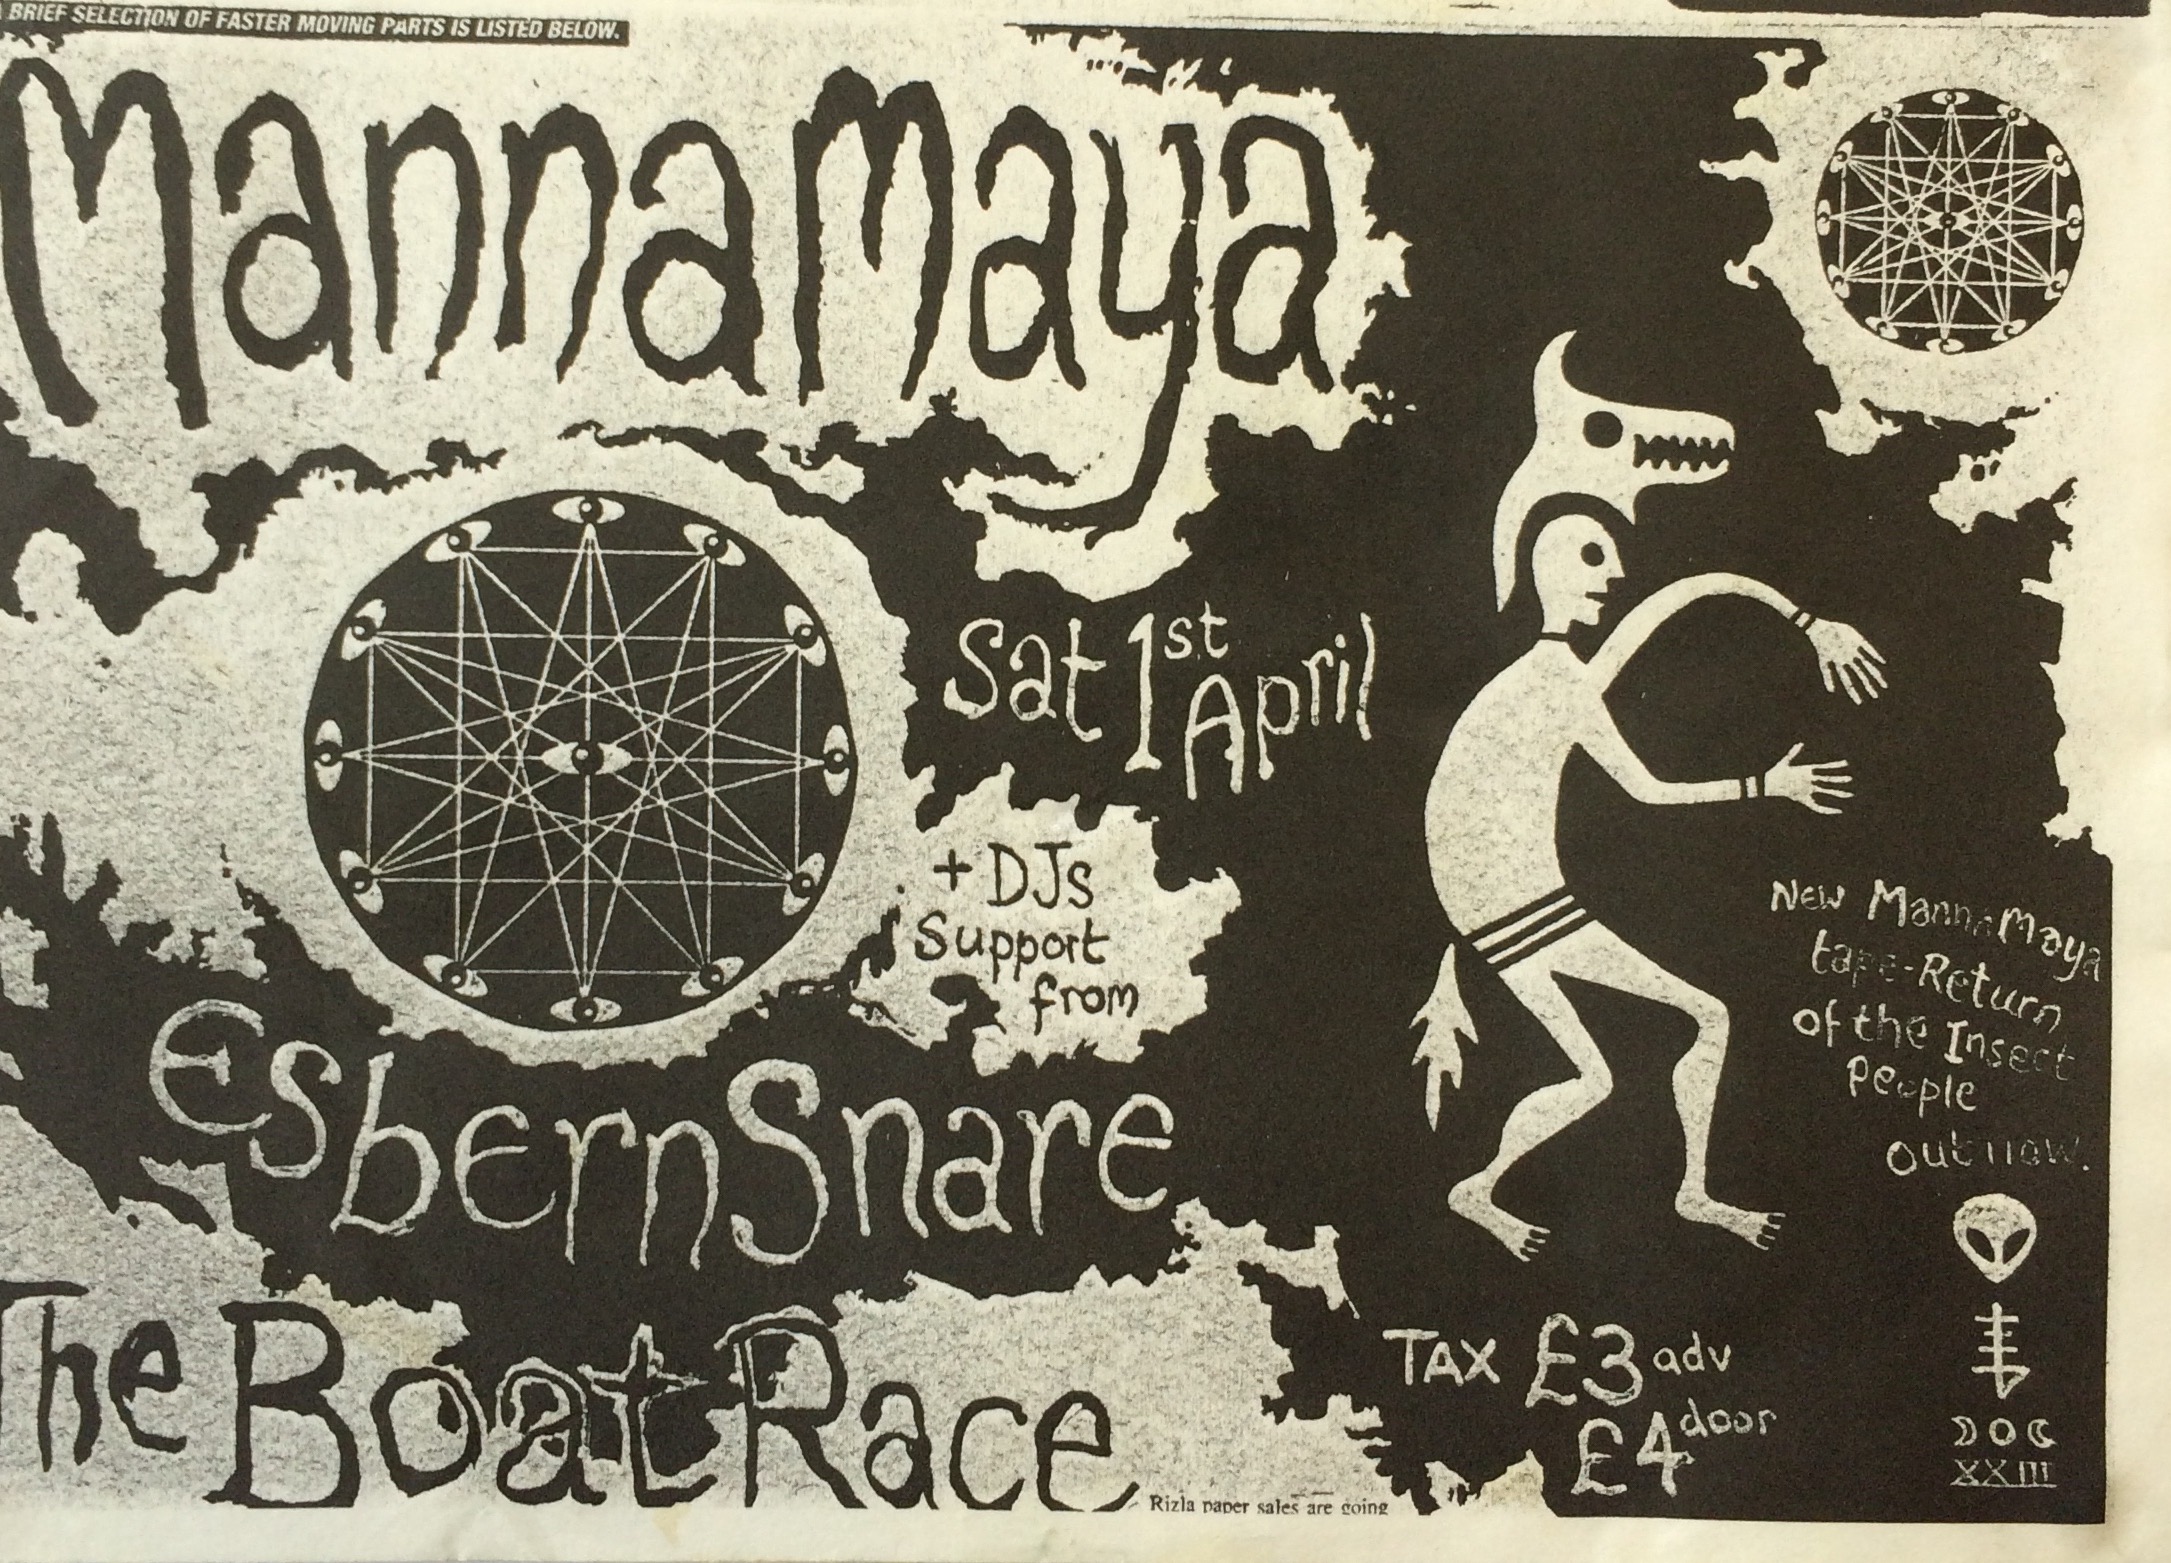 BRIEF SELECTION OF FASTER MOVING PARTS IS LISTED BELOW.
MannaMaya
Sat 1st April
+ DJs
Support
from
Esbern Snare
The Boat Race
New MannaMaya
tape-Return
of the Insect
People
out now.
TAX £3 adv
£4 door
XXIII
Rizla paper sales are going